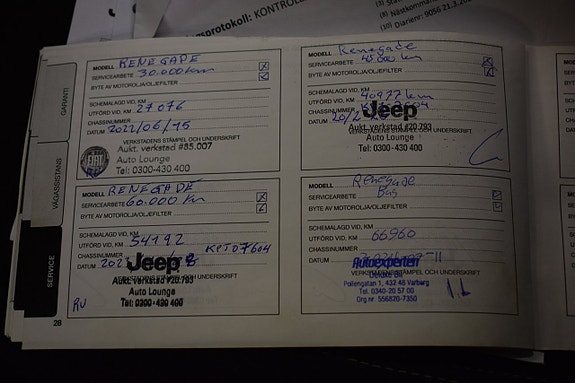 sprotokoll: KONTROLL
Nästkommand
(10) Diarienr: 9056 21.3.20
GARANTI
VÄGASSISTANS
SERVICE
MODELL RENEGADE
SERVICEARBETE 30.000 km
BYTE AV MOTOROLJA/OLJEFILTER
SCHEMALAGD VID, KM
UTFÖRD VID, KM 27.076
CHASSINUMMER
DATUM 2022/06/15
VERKSTADENS STÄMPEL OCH UNDERSKRIFT
Aukt. verkstad #85.007
Auto Lounge
Tel: 0300-430 400
FIAT
MODELL Renegade
SERVICEARBETE 45000 km
BYTE AV MOTOROLJA/OLJEFILTER
SCHEMALAGD VID, KM
UTFÖRD VID, KM 40977 km
CHASSINUMMER
DATUM
Jeep
VERKSTADENS STÄMPEL OCH UNDERSKRIFT
Aukt. verkstad #20.793
Auto Lounge
Tel: 0300-430 400
MODELL RENEGADE
SERVICEARBETE 60.000 km
BYTE AV MOTOROLJA/OLJEFILTER
SCHEMALAGD VID, KM
UTFÖRD VID, KM 54192
CHASSINUMMER KPT07604
DATUM
Jeep
VERKSTADENS STÄMPEL OCH UNDERSKRIFT
Aukt. verkstad #20.793
Auto Lounge
Tel: 0300-430 400
RU
MODELL Renegade
SERVICEARBETE Bas
BYTE AV MOTOROLJA/OLJEFILTER
SCHEMALAGD VID, KM
UTFÖRD VID, KM 66960
CHASSINUMMER
DATUM
VERKSTADENS STÄMPEL OCH UNDERSKRIFT
Autoexperten
Pollengatan 1, 432 48 Varberg
Tel: 0340-20 57 00
Org nr. 556820-7350
28